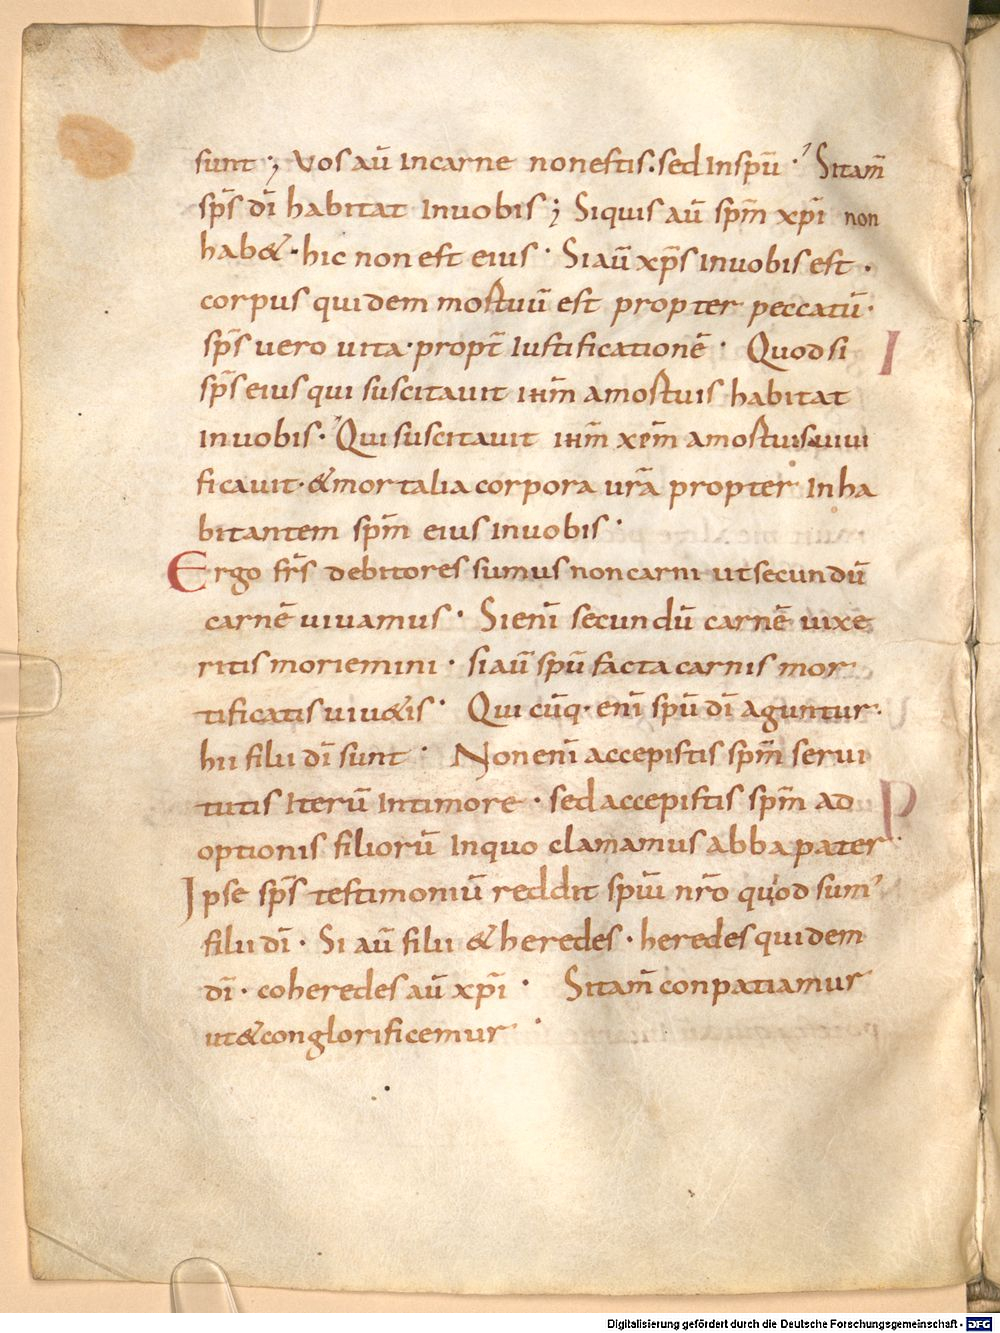 sunt ; Vos aū Incarne non estis. sed Inspū · Sitam̄
sp̄s dī habitat Inuobis ; Siquis aū sp̄m xp̄i non
hab& · hic non est eius · Si aū xp̄s Inuobis est ·
corpus quidem mortuū est propter peccatū ·
sp̄s uero uita · propt̄ Iustificationē · Quod si
sp̄s eius qui suscitauit ihm̄ amortuis habitat
Inuobis · Qui suscitauit ihm̄ xp̄m amortuis uiui
ficauit · & mortalia corpora ur̄a propter Inha
bitantem sp̄m eius Inuobis ·
Ergo fr̄s debitores sumus non carni ut secundū
carnē uiuamus · Si enī secundū carnē uixe
ritis moriemini · si aū spū facta carnis mor
tificatis uiu&is · Qui cūq· enī spū dī aguntur ·
hii filii dī sunt · Non enī accepistis sp̄m serui
tutis Iterū Intimore · sed accepistis sp̄m ad
optionis filiorū Inquo clamamus abba pater ·
Ipse sp̄s testimoniū reddit spūi nr̄o quod sum'
filii dī · Si aū filii & heredes · heredes quidem
dī · coheredes aū xp̄i · Sitam̄ conpatiamur
ut & conglorificemur ·
Digitalisierung gefördert durch die Deutsche Forschungsgemeinschaft - DFG